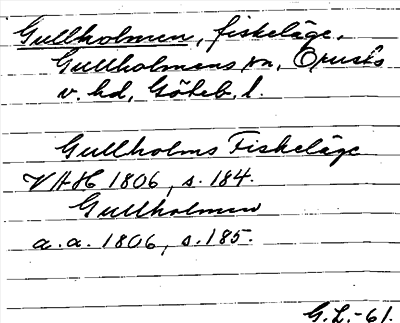 Gullholmen, fiskeläge.
Gullholmens sn, Orusts
v. hd, Göteb. l.
Gullholms Fiskeläge
VAH 1806, s. 184.
Gullholmen
a.a. 1806, s. 185.
G.L.-61.